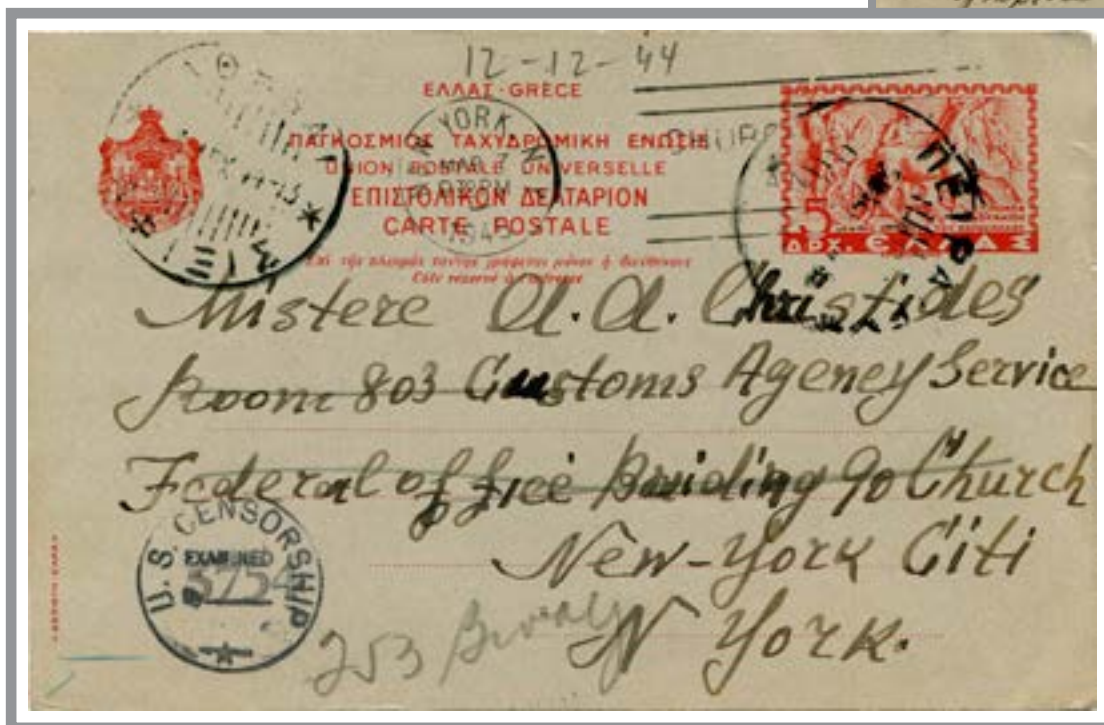 12-12-44
ΕΛΛΑΣ·GRÈCE
ΠΑΓΚΟΣΜΙΟΣ ΤΑΧΥΔΡΟΜΙΚΗ ΕΝΩΣΙΣ
UNION POSTALE UNIVERSELLE
ΕΠΙΣΤΟΛΙΚΟΝ ΔΕΛΤΑΡΙΟΝ
CARTE POSTALE
YORK, N
MAR 7
5
ΔΡΧ. ΕΛΛΑΣ
ΠΕΙΡΑ
Mistere A. A. Christides
Room 803 Customs Agency Service
Federal office Buiding 90 Church
New-York Citi
N York.
U.S. CENSORSHIP
EXAMINED
253